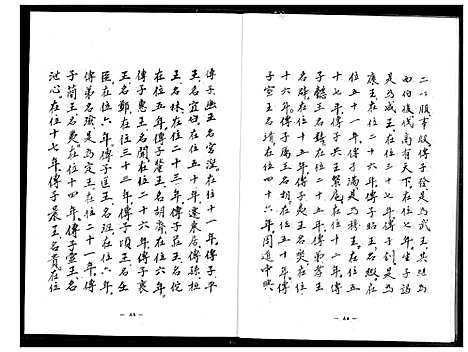 二以服事殷傳子發是為武王其庶為
西伯後伐商有天下在位七年生子誦
是為成王在位三十七年傳子釗是為
康王在位二十六年傳子昭王名瑕在
五十一年傳子滿是為穆王在位五
十七年傳子共王繄扈在位十二年傳
子懿王名囏在位二十五年傳弟孝王
名辟在位十五年傳子夷王名燮在位
十六年傳子厲王名胡在位五十年傳
子宣王名靖在位四十六年周道中興
傳子幽王名宮涅在位十一年傳子平
王名宜臼在位五十年遂東居傳孫桓
王名林在位二十三年傳子莊王名佗
在位五年傳子釐王名胡齊在位六年
傳子惠王名閬在位二十六年傳子襄
王名鄭在位三十三年傳子頃王名壬
臣在位六年傳子匡王名班在位六年
傳弟名瑜是為定王在位二十一年傳
子簡王名夷在位十四年傳子靈王名
泄心在位十七年傳子景王名貴在位